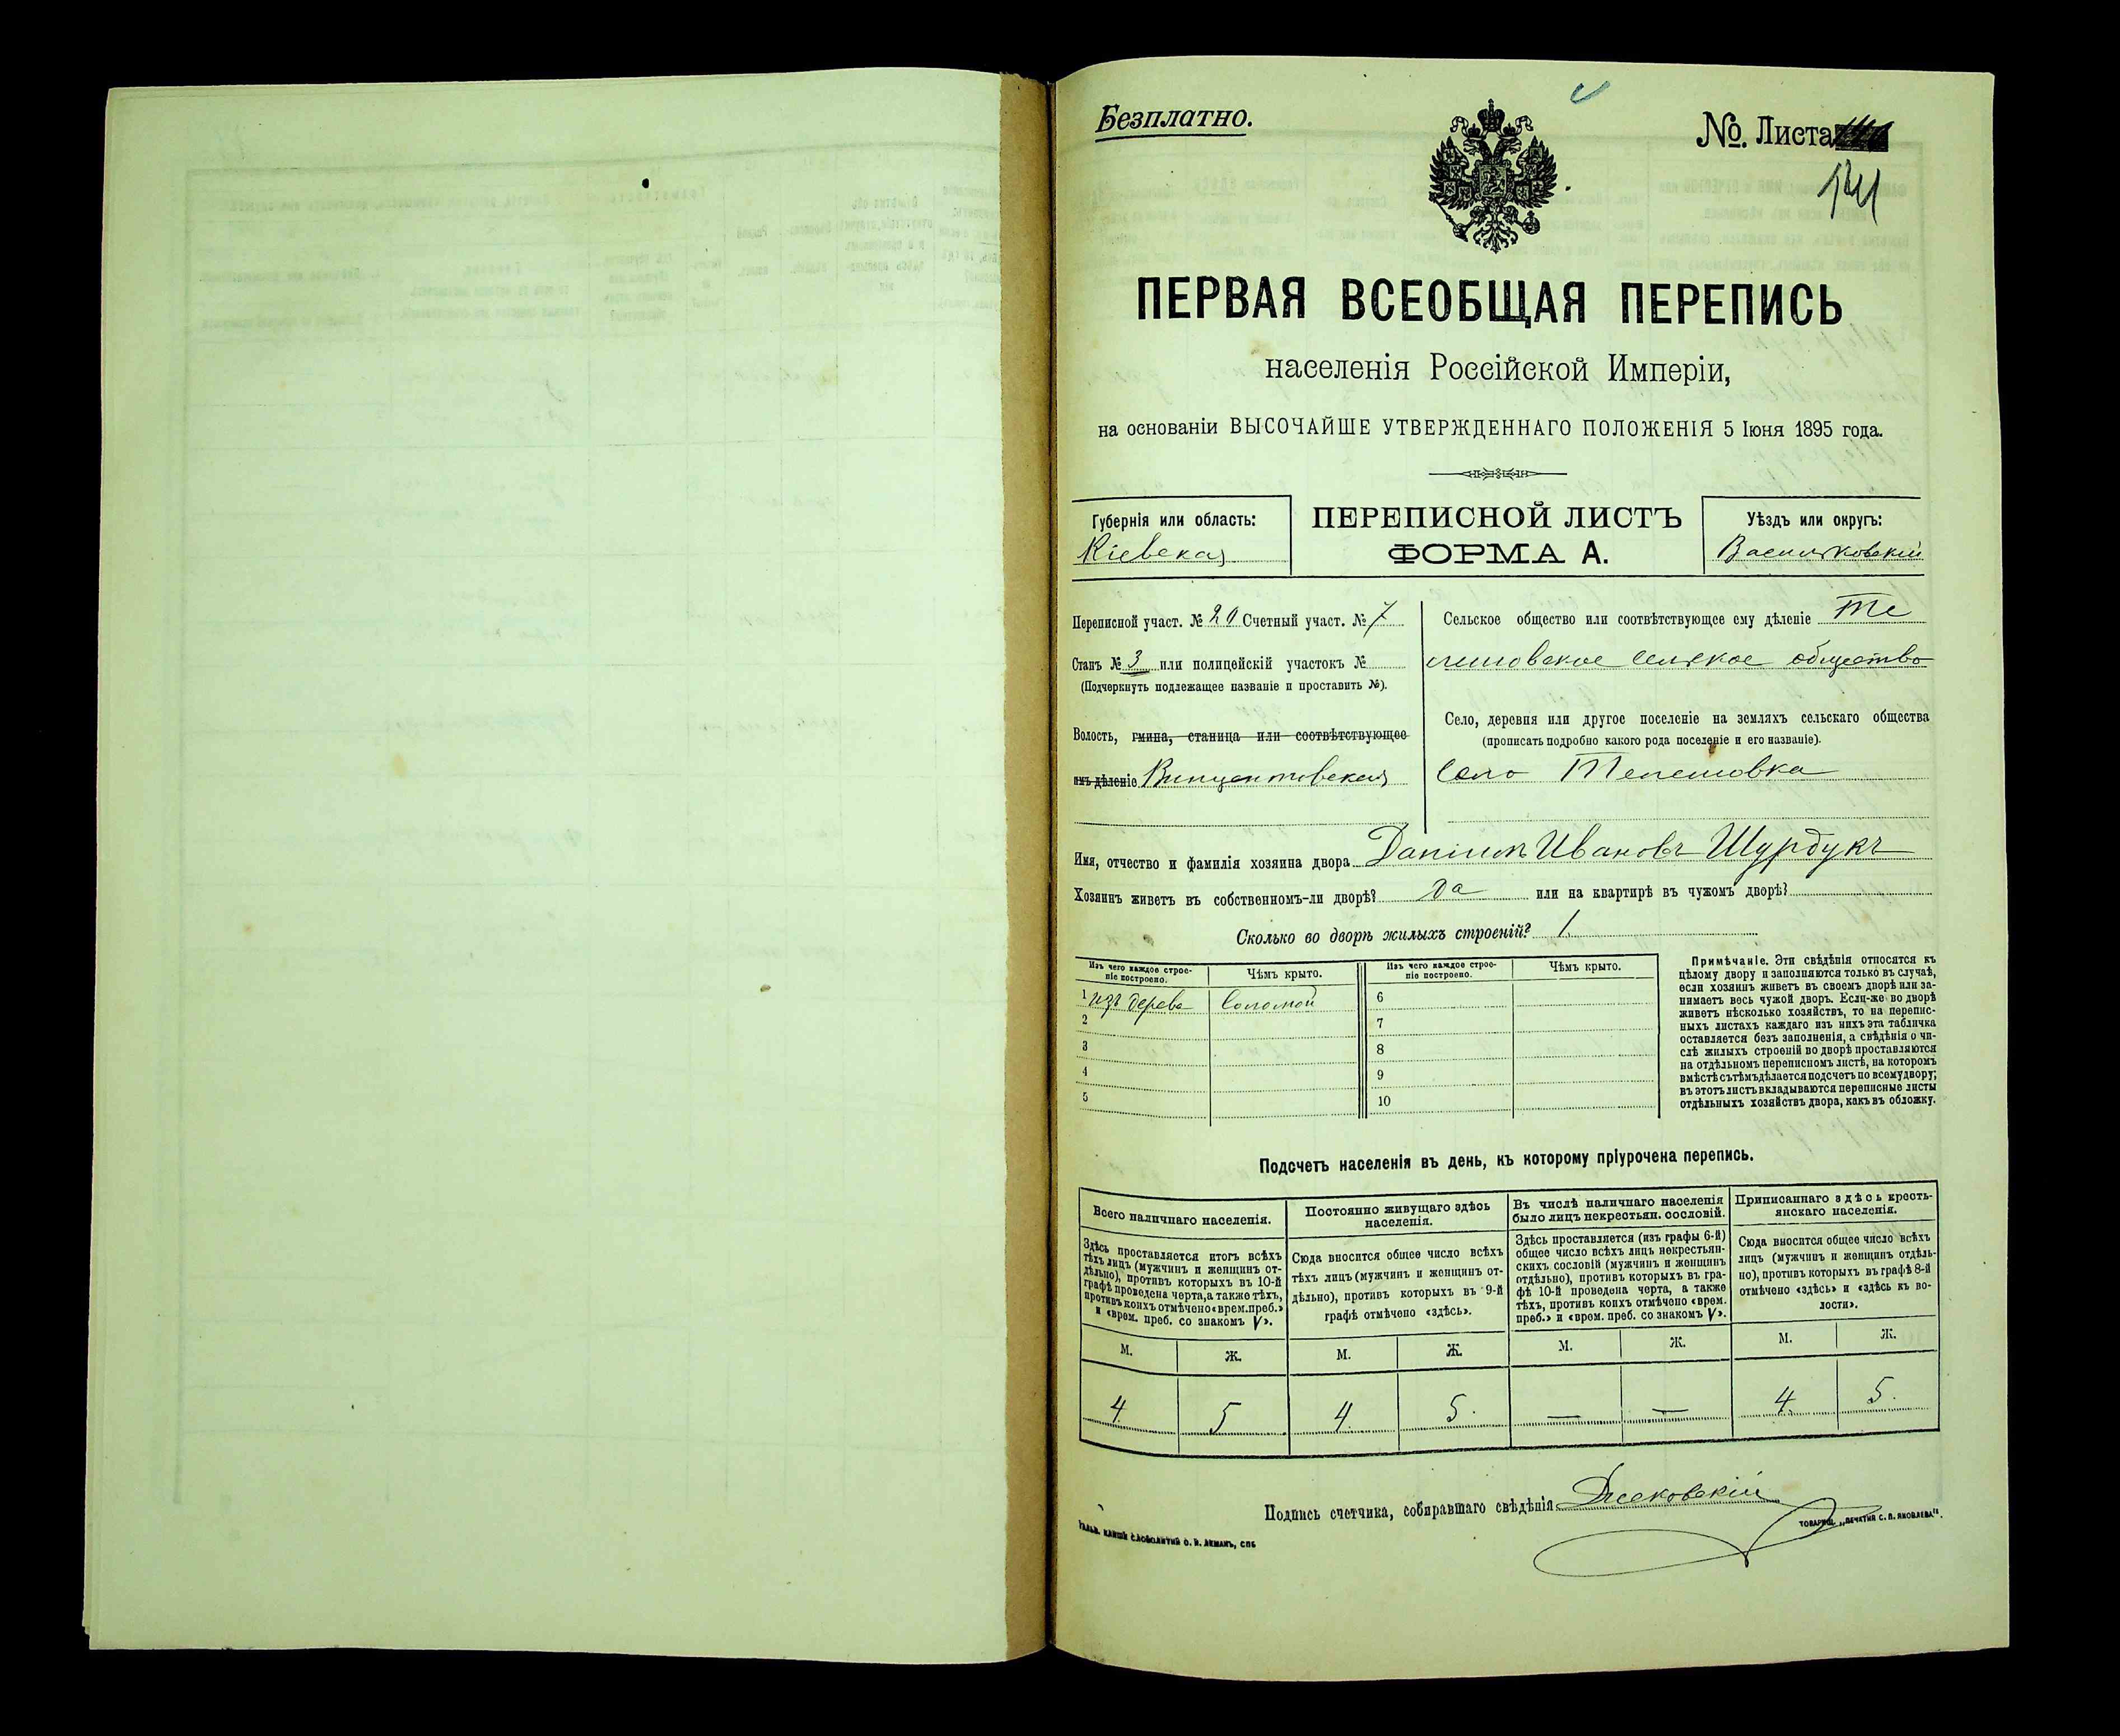 Безплатно.
№. Листа
141
ПЕРВАЯ ВСЕОБЩАЯ ПЕРЕПИСЬ
населенія Россійской Имперіи,
на основаніи ВЫСОЧАЙШЕ УТВЕРЖДЕННАГО ПОЛОЖЕНІЯ 5 Іюня 1895 года.
Губернія или область:
Кіевская
ПЕРЕПИСНОЙ ЛИСТЪ
ФОРМА А.
Уѣздъ или округъ:
Васильковскій
Переписной участ. № 20 Счетный участ. № 7
Станъ № 3 или полицейскій участокъ №
(Подчеркнуть подлежащее названіе и проставить №).
Волость, гмина, станица или соотвѣтствующее
имъ дѣленіе Винцентовская
Сельское общество или соотвѣтствующее ему дѣленіе Те
лешовское сельское общество
Село, деревня или другое поселеніе на земляхъ сельскаго общества
(прописать подробно какого рода поселеніе и его названіе).
Село Телешовка
Имя, отчество и фамилія хозяина двора Даніилъ Ивановъ Шурдукъ
Хозяинъ живетъ въ собственномъ-ли дворѣ? Да или на квартирѣ въ чужомъ дворѣ?
Сколько во дворѣ жилыхъ строеній? 1.
Изъ чего каждое строе-
ніе построено.
Чѣмъ крыто.
Изъ чего каждое строе-
ніе построено.
Чѣмъ крыто.
1 изъ дерева Соломой
2
3
4
5
6
7
8
9
10
Примѣчаніе. Эти свѣдѣнія относятся къ
цѣлому двору и заполняются только въ случаѣ,
если хозяинъ живетъ въ своемъ дворѣ или за-
нимаетъ весь чужой дворъ. Если-же во дворѣ
живетъ нѣсколько хозяйствъ, то на перепис-
ныхъ листахъ каждаго изъ нихъ эта табличка
оставляется безъ заполненія, а свѣдѣнія о чи-
слѣ жилыхъ строеній во дворѣ проставляются
на отдѣльномъ переписномъ листѣ, на которомъ
вмѣстѣ съ тѣмъ дѣлается подсчетъ по всему двору;
въ этотъ листъ вкладываются переписные листы
отдѣльныхъ хозяйствъ двора, какъ въ обложку.
Подсчетъ населенія въ день, къ которому пріурочена перепись.
Всего наличнаго населенія.
Здѣсь проставляется итогъ всѣхъ
тѣхъ лицъ (мужчинъ и женщинъ от-
дѣльно), противъ которыхъ въ 10-й
графѣ проведена черта, а также тѣхъ,
противъ коихъ отмѣчено «врем. преб.»
и «врем. преб. со знакомъ V».
Постоянно живущаго здѣсь
населенія.
Сюда вносится общее число всѣхъ
тѣхъ лицъ (мужчинъ и женщинъ от-
дѣльно), противъ которыхъ въ 9-й
графѣ отмѣчено «здѣсь».
Въ числѣ наличнаго населенія
было лицъ некрестьян. сословій.
Здѣсь проставляется (изъ графы 6-й)
общее число всѣхъ лицъ некрестьян-
скихъ сословій (мужчинъ и женщинъ
отдѣльно), противъ которыхъ въ гра-
фѣ 10-й проведена черта, а также
тѣхъ, противъ коихъ отмѣчено «врем.
преб.» и «врем. преб. со знакомъ V».
Приписаннаго здѣсь кресть-
янскаго населенія.
Сюда вносится общее число всѣхъ
лицъ (мужчинъ и женщинъ отдѣль-
но), противъ которыхъ въ графѣ 8-й
отмѣчено «здѣсь» и «здѣсь къ во-
лости».
М. Ж. М. Ж. М. Ж. М. Ж.
4 5 4 5. — — 4. 5.
Подпись счетчика, собиравшаго свѣдѣнія
ТОВАРИЩ. „ПЕЧАТНЯ С. П. ЯКОВЛЕВА".